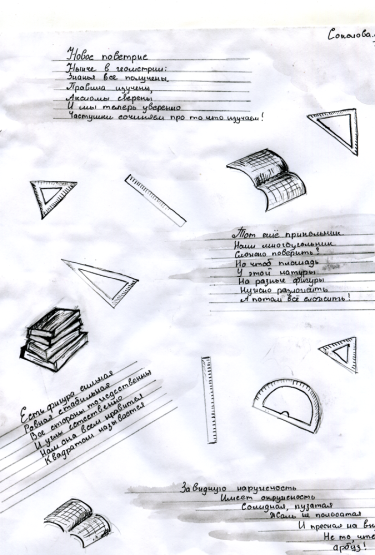 Соколова
Новое поветрие
Нынче в геометрии:
Знанья все получены,
Правила изучены,
Аксиомы сверены
И мы теперь уверенно
Частушки сочиняем про то что изучаем!
Тот ещё прикольник
Наш многоугольник
Сложно поверить?
Но чтоб площадь
У этой натуры
На разные фигуры
Нужно разложить
А потом всё сложить!
Есть фигура сильная
Ровная стабильная
Все стороны тождественны
И углы естественно
Нам она всем нравится
Квадратом называется
Завидную наружность
Имеет окружность
Солидная, пузатая
Жаль не полосатая
И пресная на
Не то, что
арбуз!